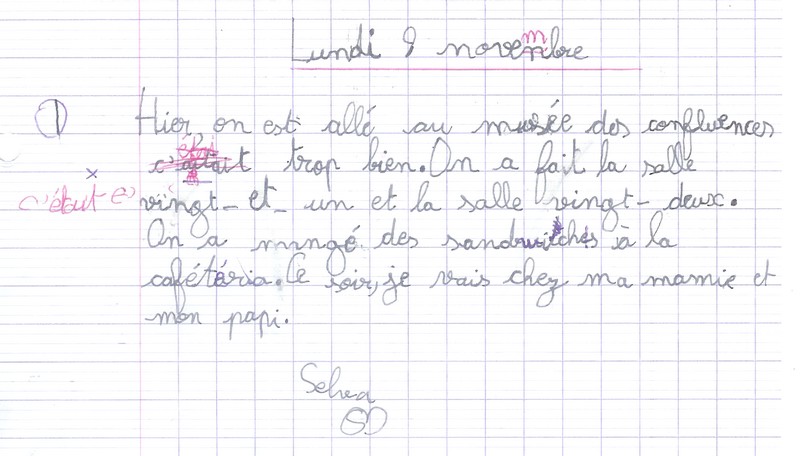 Lundi 9 novembre
1 Hier, on est allé au musée des confluences
c'était trop bien. On a fait la salle
c'était
vingt-et-un et la salle vingt-deux.
On a mangé des sandwichs à la
cafétéria. Ce soir, je vais chez ma mamie et
mon papi.